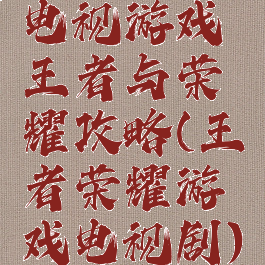 电视游戏
王者与荣
耀攻略(王
者荣耀游
戏电视剧)